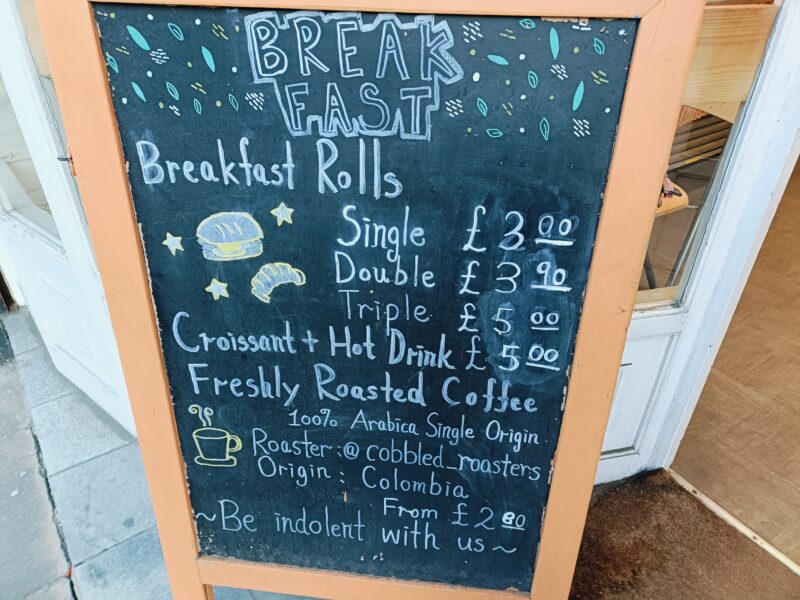 BREAK
FAST
Breakfast Rolls
Single £3.00
Double £3.90
Triple £5.00
Croissant + Hot Drink £5.00
Freshly Roasted Coffee
100% Arabica Single Origin
Roaster:@cobbled_roasters
Origin: Colombia
From £2.80
~Be indolent with us~